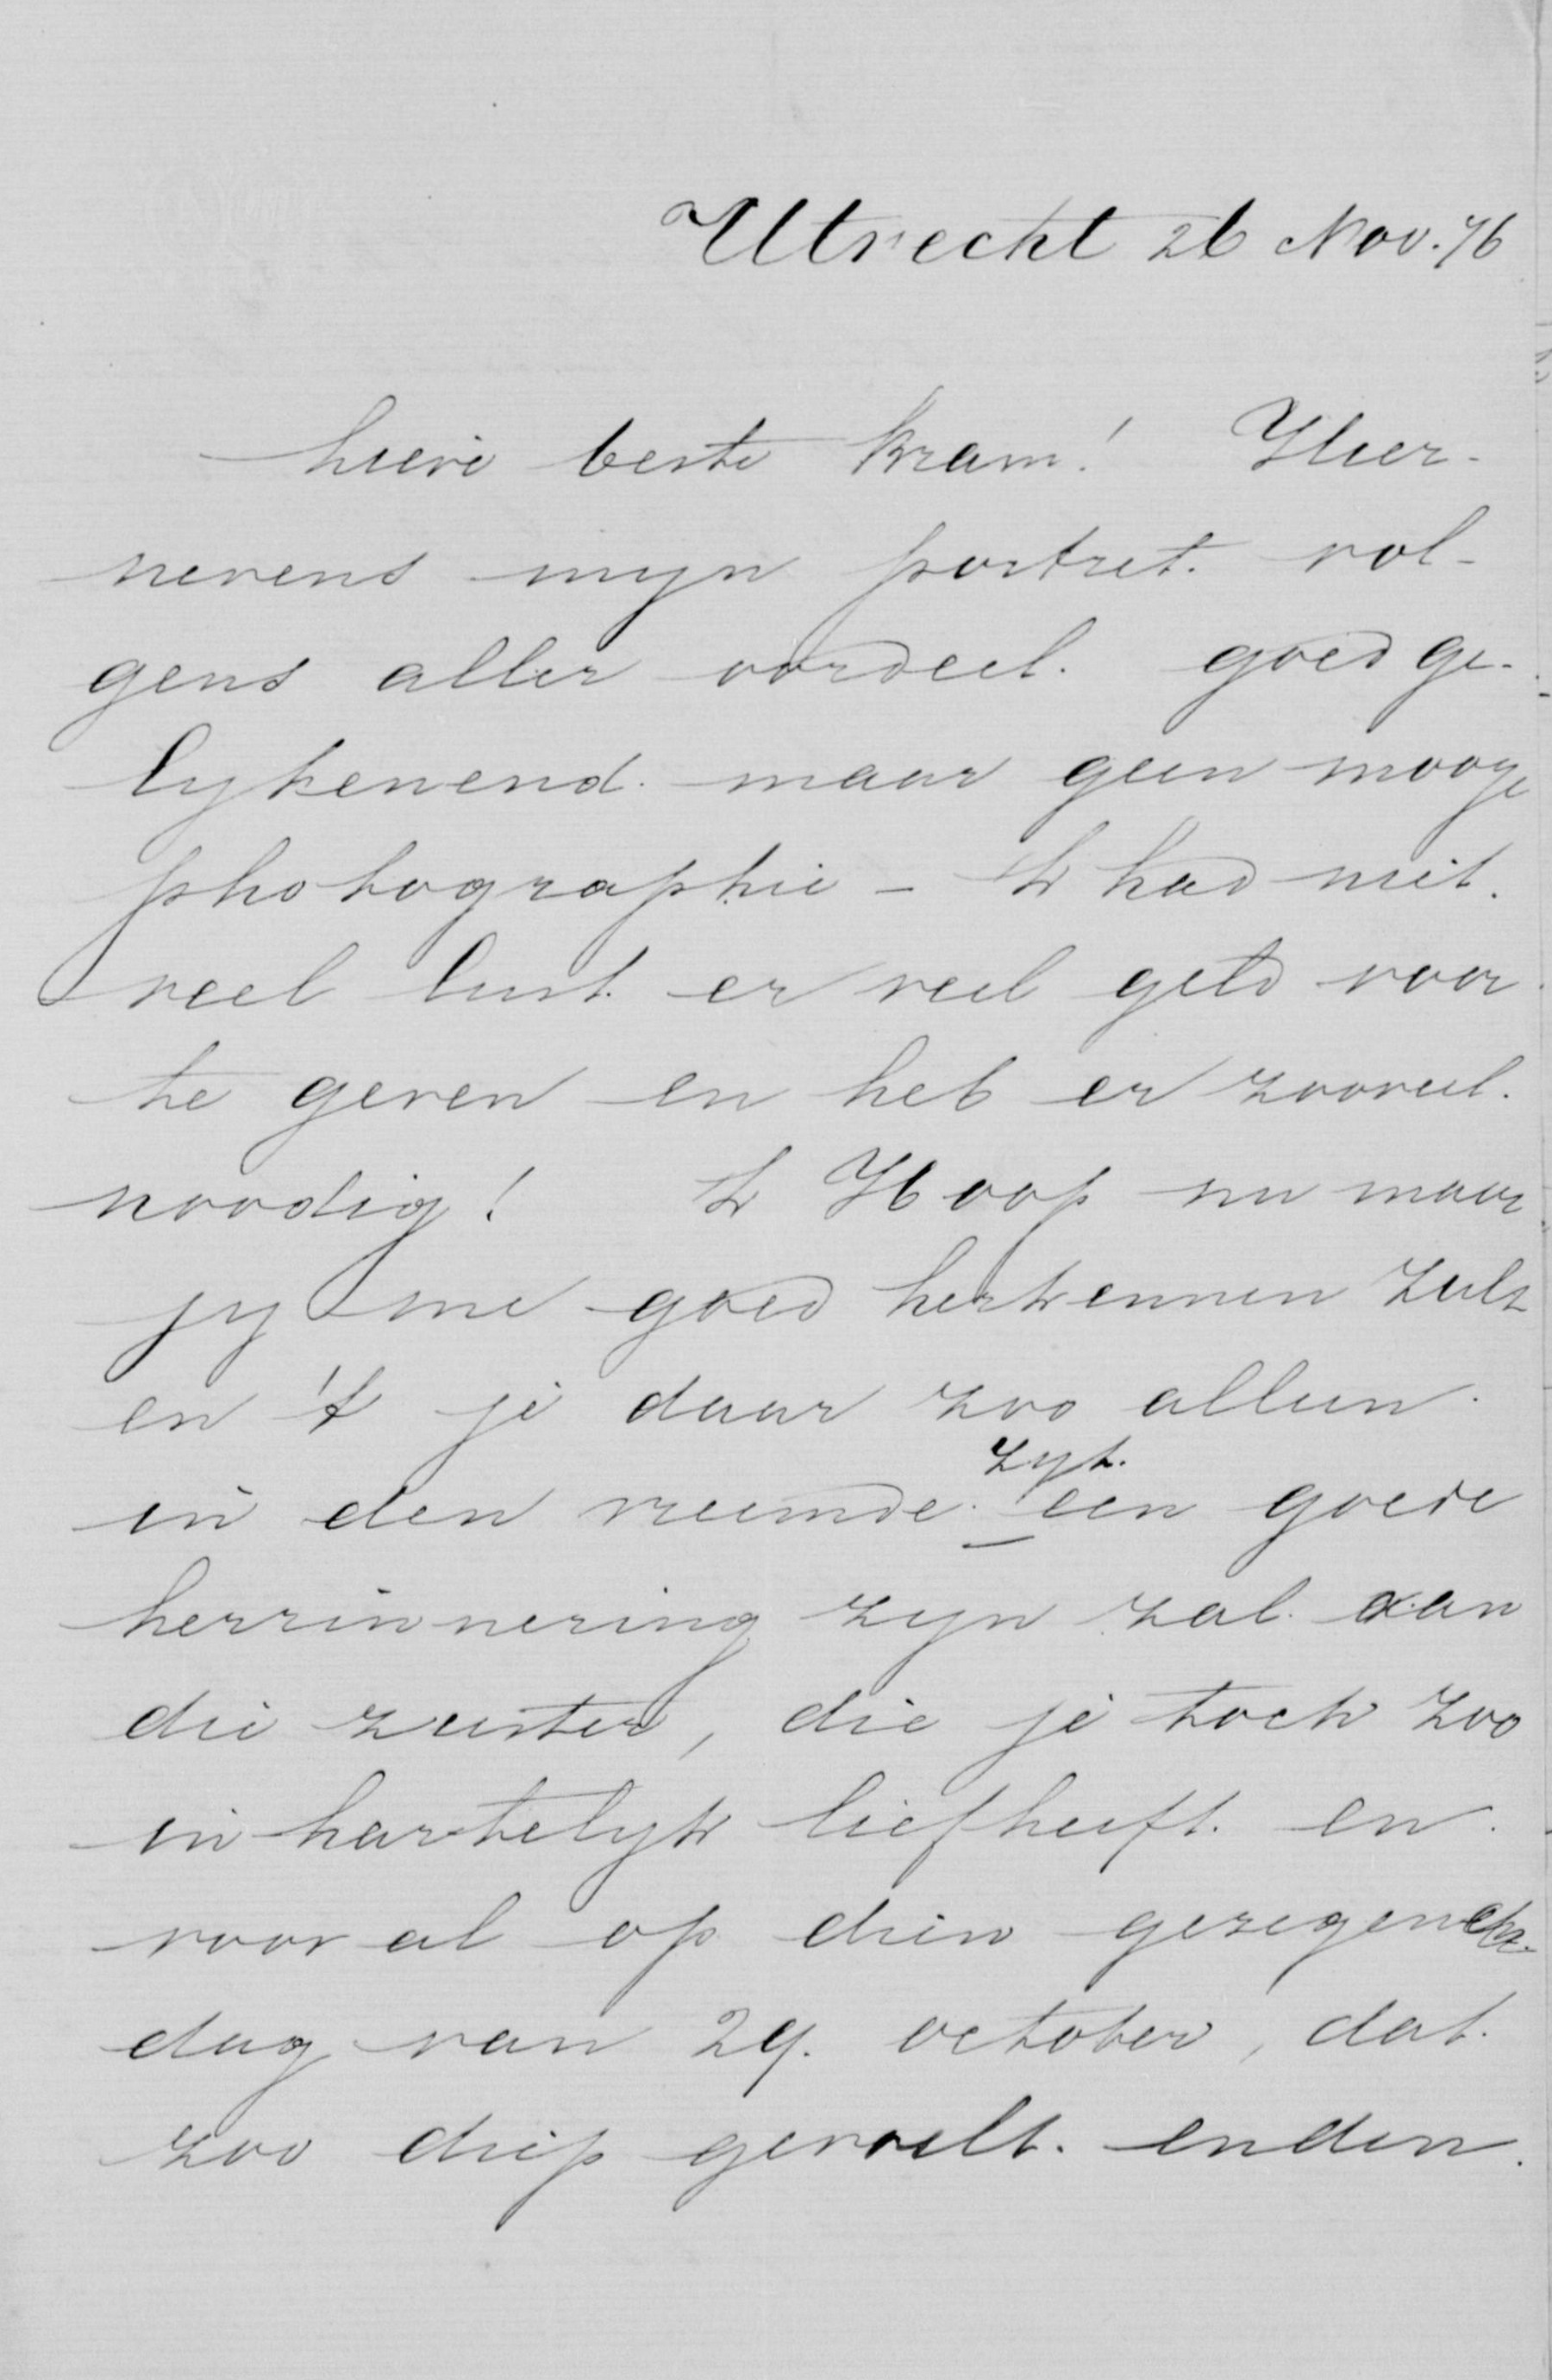 Utrecht 26 Nov. 76
Lieve beste Bram! Hier-
nevens myn portret. vol-
gens aller oordeel. goed ge-
lykenend. maar geen mooye
photographie - Ik had niet.
veel lust. er veel geld voor
te geven en heb er zooveel.
noodig! Ik Hoop nu maar
jy me goed herkennen zult
en 't je daar zoo alleen.
zyt.
in den vreemde. een goede
herrinnering zyn zal. aan
die zuster, die je toch zoo
inhartelyk liefheeft. en.
vooral op dien gezegenden
dag van 29. october, dat.
zoo diep gevoelt. en den.